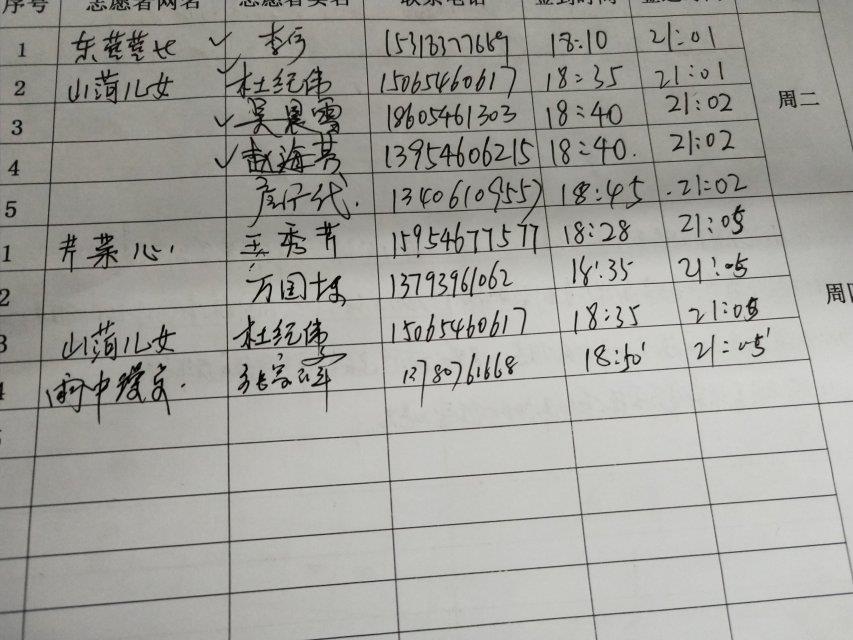 序号 志愿者网名 志愿者实名 联系电话 签到时间 签退时间
1 李 15313377669 18:10 21:01
2 山菏儿女 杜纪伟 15065460617 18:35 21:01
3 吴晨雪 18605461303 18:40 21:02
4 赵海英 13954606215 18:40. 21:02
周二
5 13406109557 18:45 21:02
1 芹菜心. 王秀芹 15954677577 18:28 21:05
2 万国 13793961062 18:35 21:05
周四
3 山菏儿女 杜纪伟 15065460617 18:35 21:05
4 雨中 张 13780761668 18:50 21:05
5